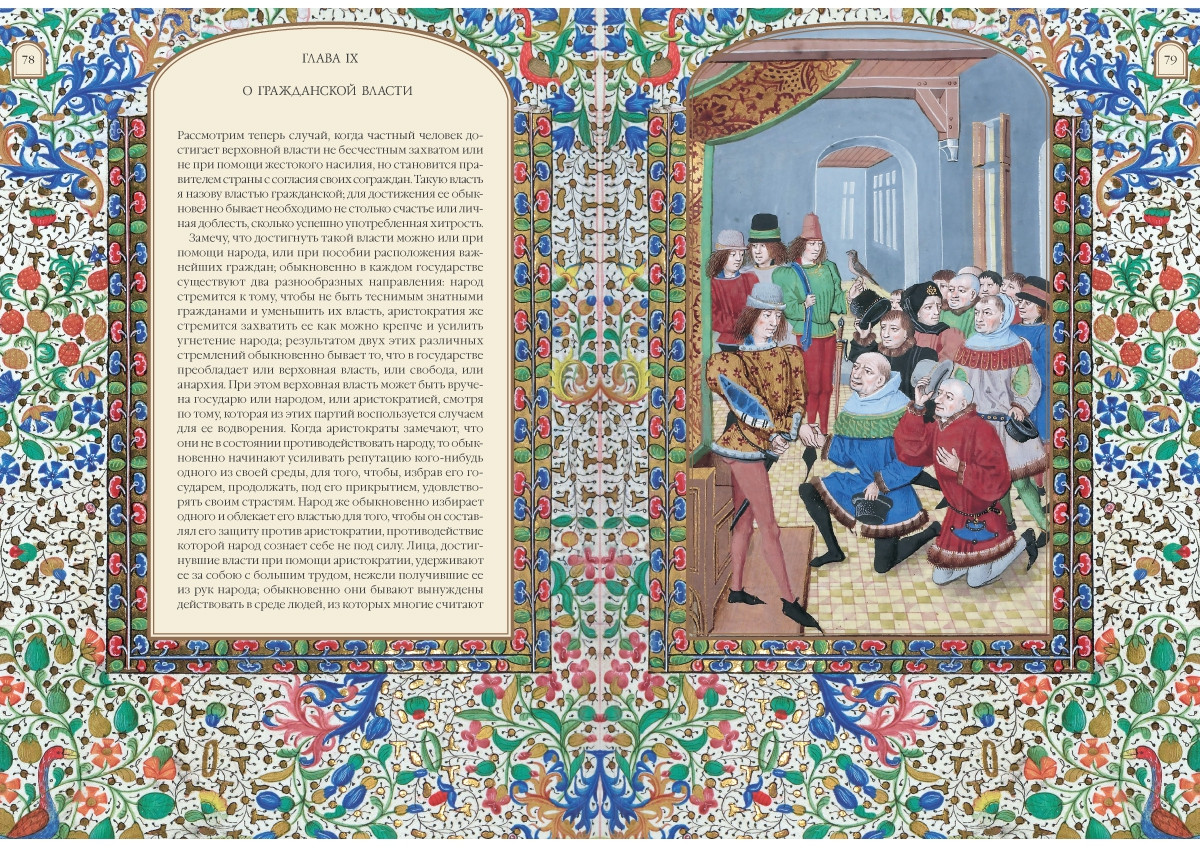 78
ГЛАВА IX
О ГРАЖДАНСКОЙ ВЛАСТИ
Рассмотрим теперь случай, когда частный человек до-
стигает верховной власти не бесчестным захватом или
не при помощи жестокого насилия, но становится пра-
вителем страны с согласия своих сограждан. Такую власть
я назову властью гражданской; для достижения ее обык-
новенно бывает необходимо не столько счастье или лич-
ная доблесть, сколько успешно употребленная хитрость.
Замечу, что достигнуть такой власти можно или при
помощи народа, или при пособии расположения важ-
нейших граждан; обыкновенно в каждом государстве
существуют два разнообразных направления: народ
стремится к тому, чтобы не быть теснимым знатными
гражданами и уменьшить их власть, аристократия же
стремится захватить ее как можно крепче и усилить
угнетение народа; результатом двух этих различных
стремлений обыкновенно бывает то, что в государстве
преобладает или верховная власть, или свобода, или
анархия. При этом верховная власть может быть вруче-
на государю или народом, или аристократией, смотря
по тому, которая из этих партий воспользуется случаем
для ее водворения. Когда аристократы замечают, что
они не в состоянии противодействовать народу, то обык-
новенно начинают усиливать репутацию кого-нибудь
одного из своей среды, для того, чтобы, избрав его го-
сударем, продолжать, под его прикрытием, удовлетво-
рять своим страстям. Народ же обыкновенно избирает
одного и облекает его властью для того, чтобы он состав-
лял его защиту против аристократии, противодействие
которой народ сознает себе не под силу. Лица, достиг-
нувшие власти при помощи аристократии, удерживают
ее за собою с большим трудом, нежели получившие ее
из рук народа; обыкновенно они бывают вынуждены
действовать в среде людей, из которых многие считают
79